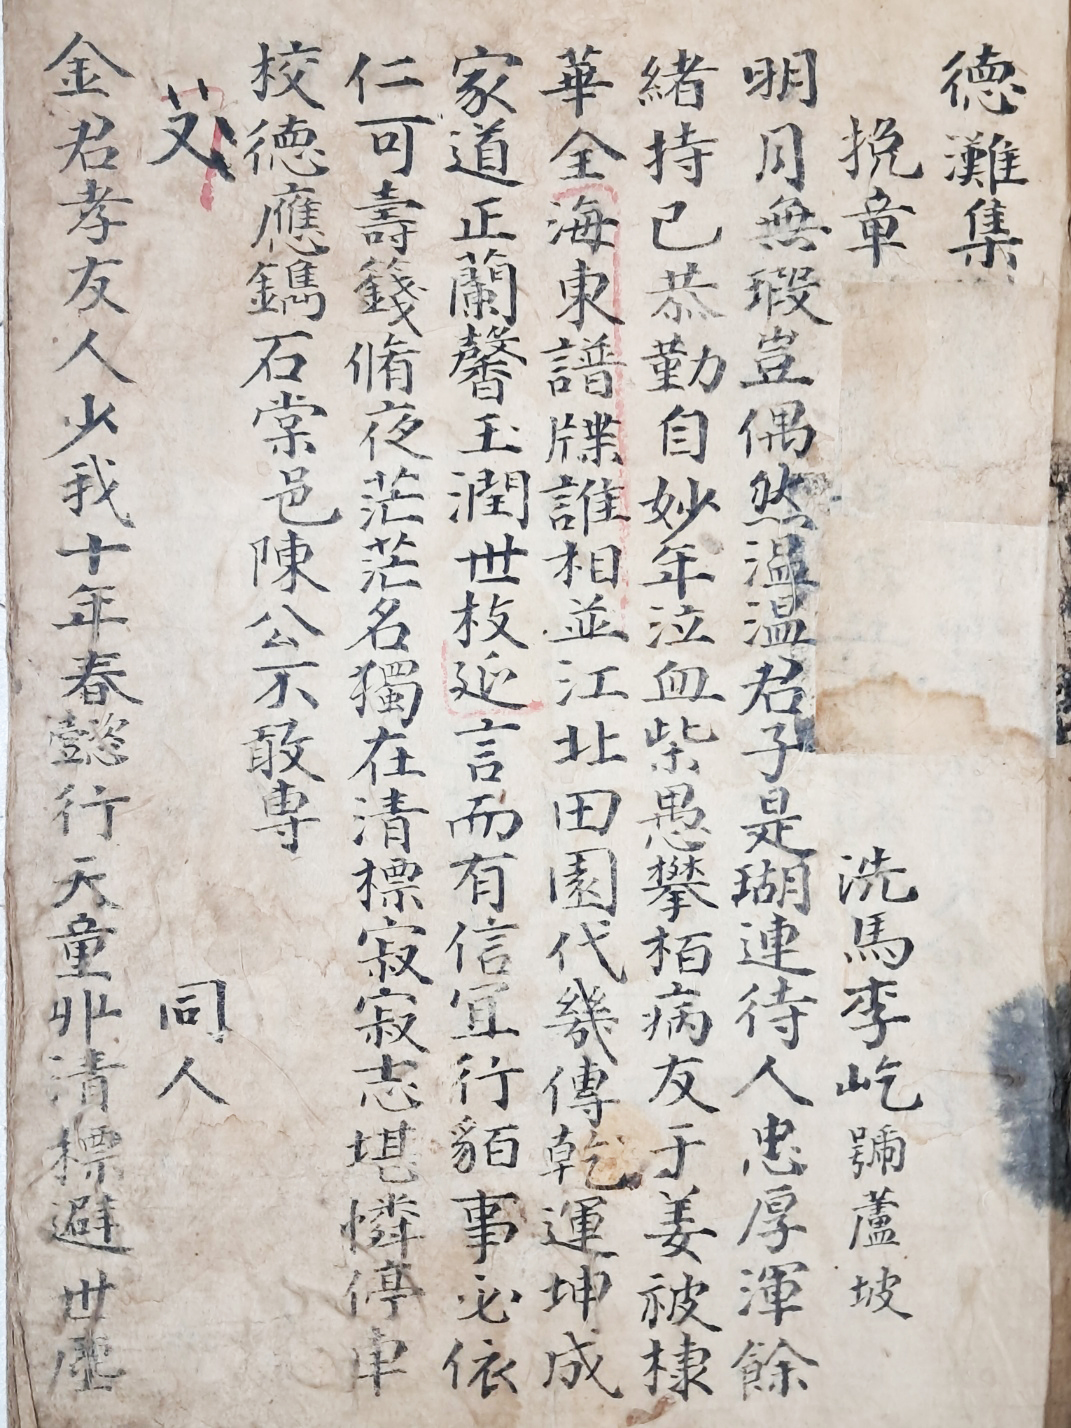 德灘集
挽章
洗馬李屹號蘆坡
明月無瑕豈偶然溫溫君子是瑚連待人忠厚渾餘
緒持己恭勤自妙年泣血柴愚攀栢病友于姜被棣
華全海東譜牒誰相並江北田園代幾傳乾運坤成
家道正蘭馨玉潤世枚延言而有信宜行貊事必依
仁可壽籛脩夜茫茫名獨在清標寂寂志堪憐停車
校德應鐫石棠邑陳公不敢專
又
同人
金君孝友人少我十年春懿行天童非清標避世塵